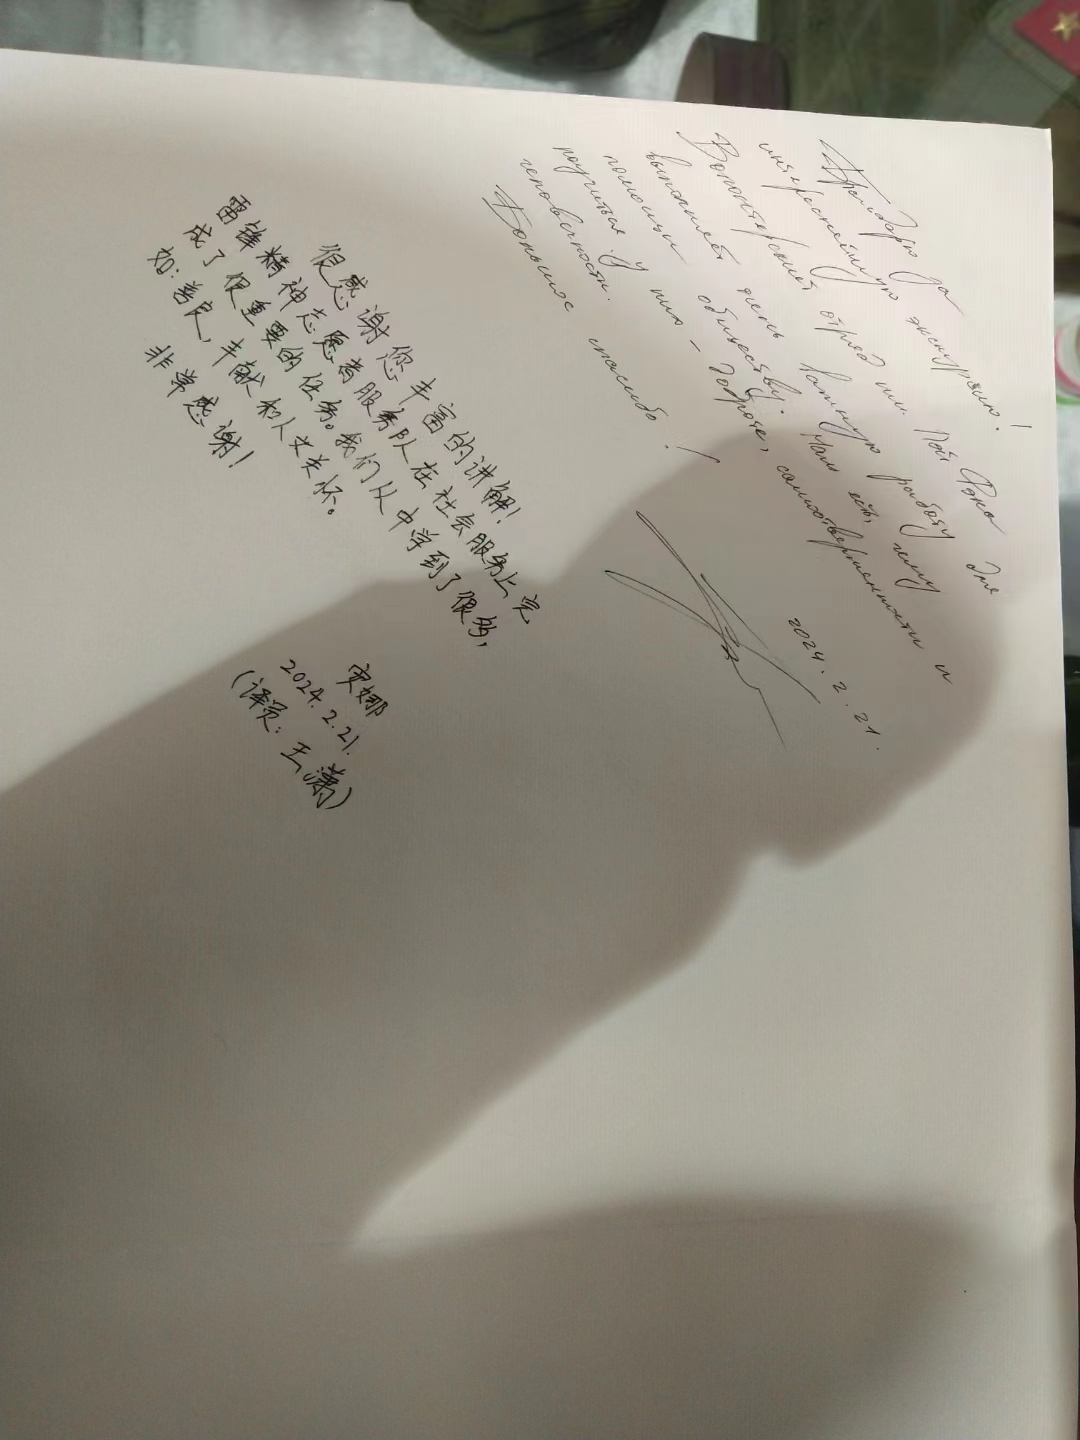 Благодарю за
интереснейшую экскурсию!
Волонтерский отряд им. Лэй Фэна
выполняет очень важную работу для
помощи обществу. Нам есть чему
поучиться у них – доброте, самоотверженности и
человечности.
Большое спасибо!
2024. 2. 21.
很感谢您丰富的讲解!
雷锋精神志愿者服务队在社会服务上完
成了很重要的任务。我们从中学到了很多,
如:善良,奉献和人文关怀。
非常感谢!
安娜
2024. 2. 21.
(译员:王潇)